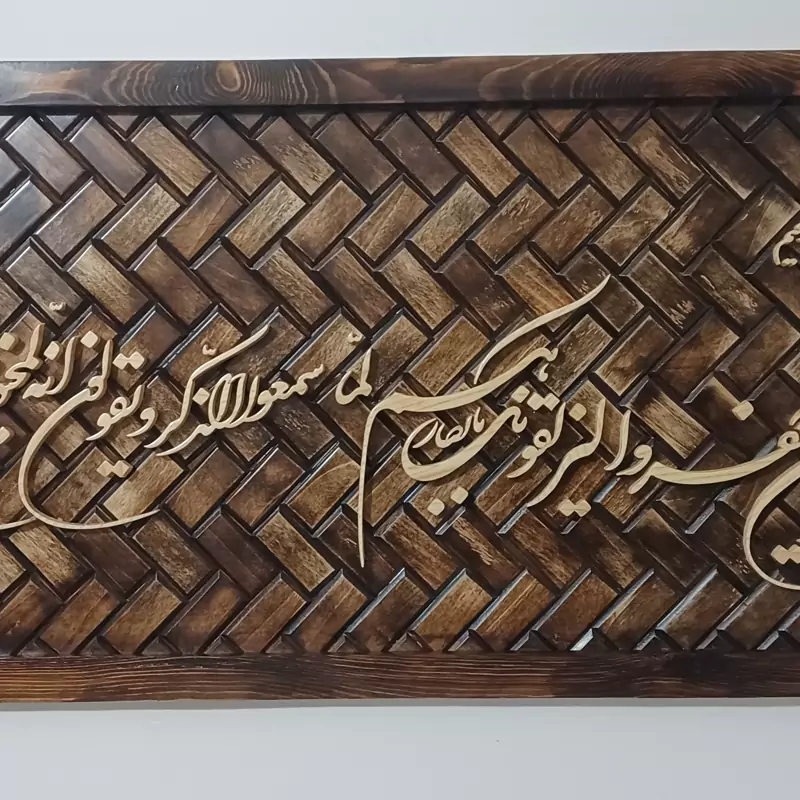 فروا ليزلقونك بابصارهم لمّا سمعوا الذّكر و يقولون انّه لمجنو